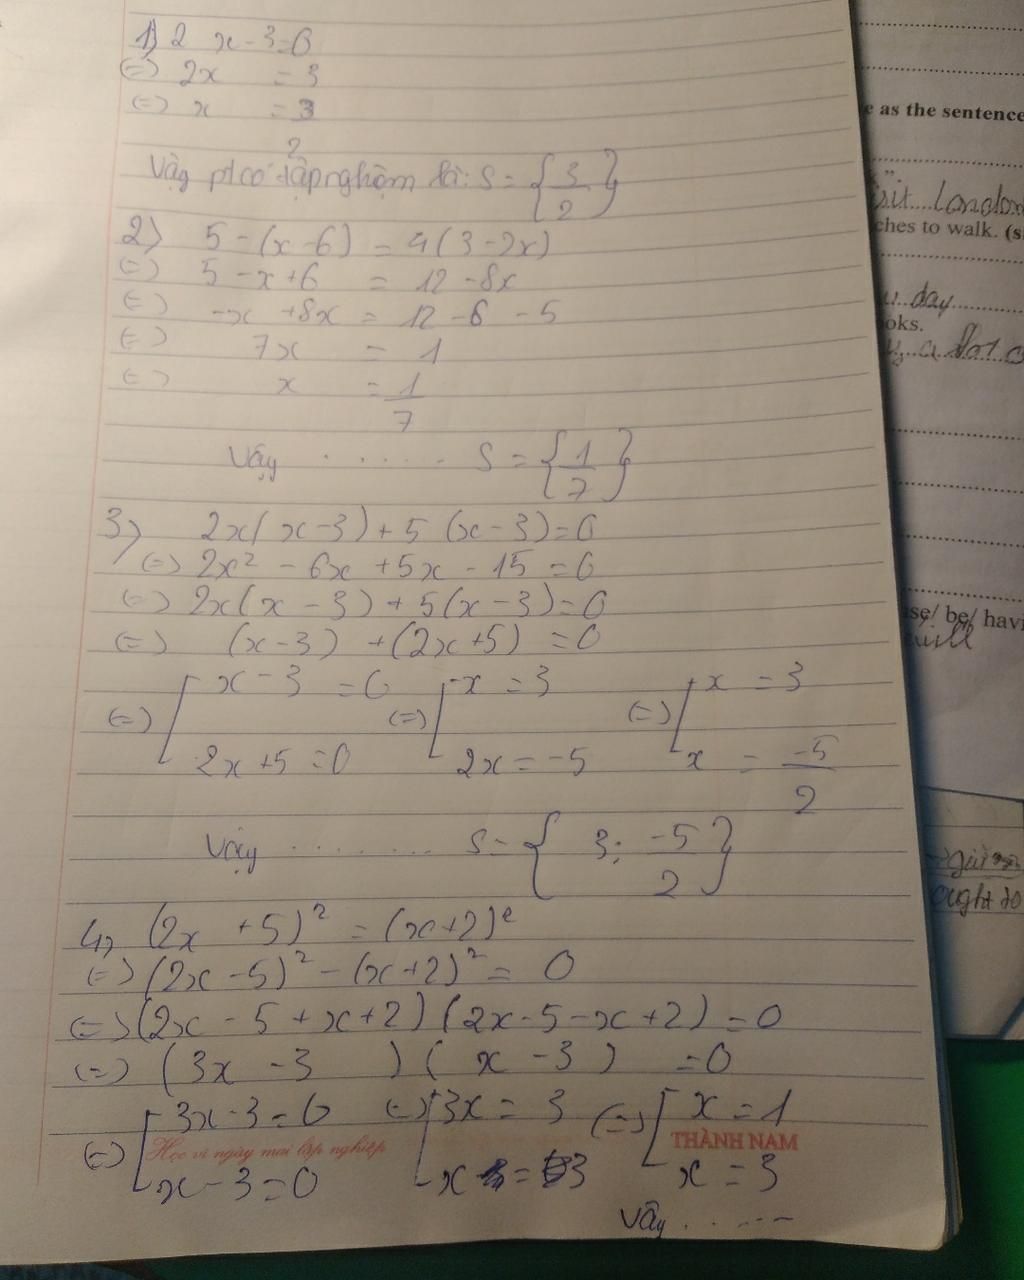 1) 2 x - 3 = 0
(=) 2x = 3
(=) x = 3/2
Vậy pt có tập nghiệm là: S = { 3/2 }
2) 5 - (x - 6) = 4(3 - 2x)
(=) 5 - x + 6 = 12 - 8x
(=) -x + 8x = 12 - 6 - 5
(=) 7x = 1
(=) x = 1/7
Vậy ....... S = { 1/7 }
3) 2x(x - 3) + 5(x - 3) = 0
(=) 2x² - 6x + 5x - 15 = 0
(=) 2x(x - 3) + 5(x - 3) = 0
(=) (x - 3) + (2x + 5) = 0
(=) [ x - 3 = 0 (=) [ x = 3 (=) [ x = 3
2x + 5 = 0 2x = -5 x = -5/2
Vậy ......... S = { 3; -5/2 }
4) (2x + 5)² = (x + 2)²
(=) (2x - 5)² - (x + 2)² = 0
(=) (2x - 5 + x + 2)(2x - 5 - x + 2) = 0
(=) (3x - 3)(x - 3) = 0
(=) [ 3x - 3 = 0 (=) [ 3x = 3 (=) [ x = 1
Học vì ngày mai lập nghiệp THÀNH NAM
x - 3 = 0 x = 3 x = 3
Vậy ......
e as the sentence
London
ches to walk. (s
day
oks.
a lot o
se/ be/ havi
will
ought to